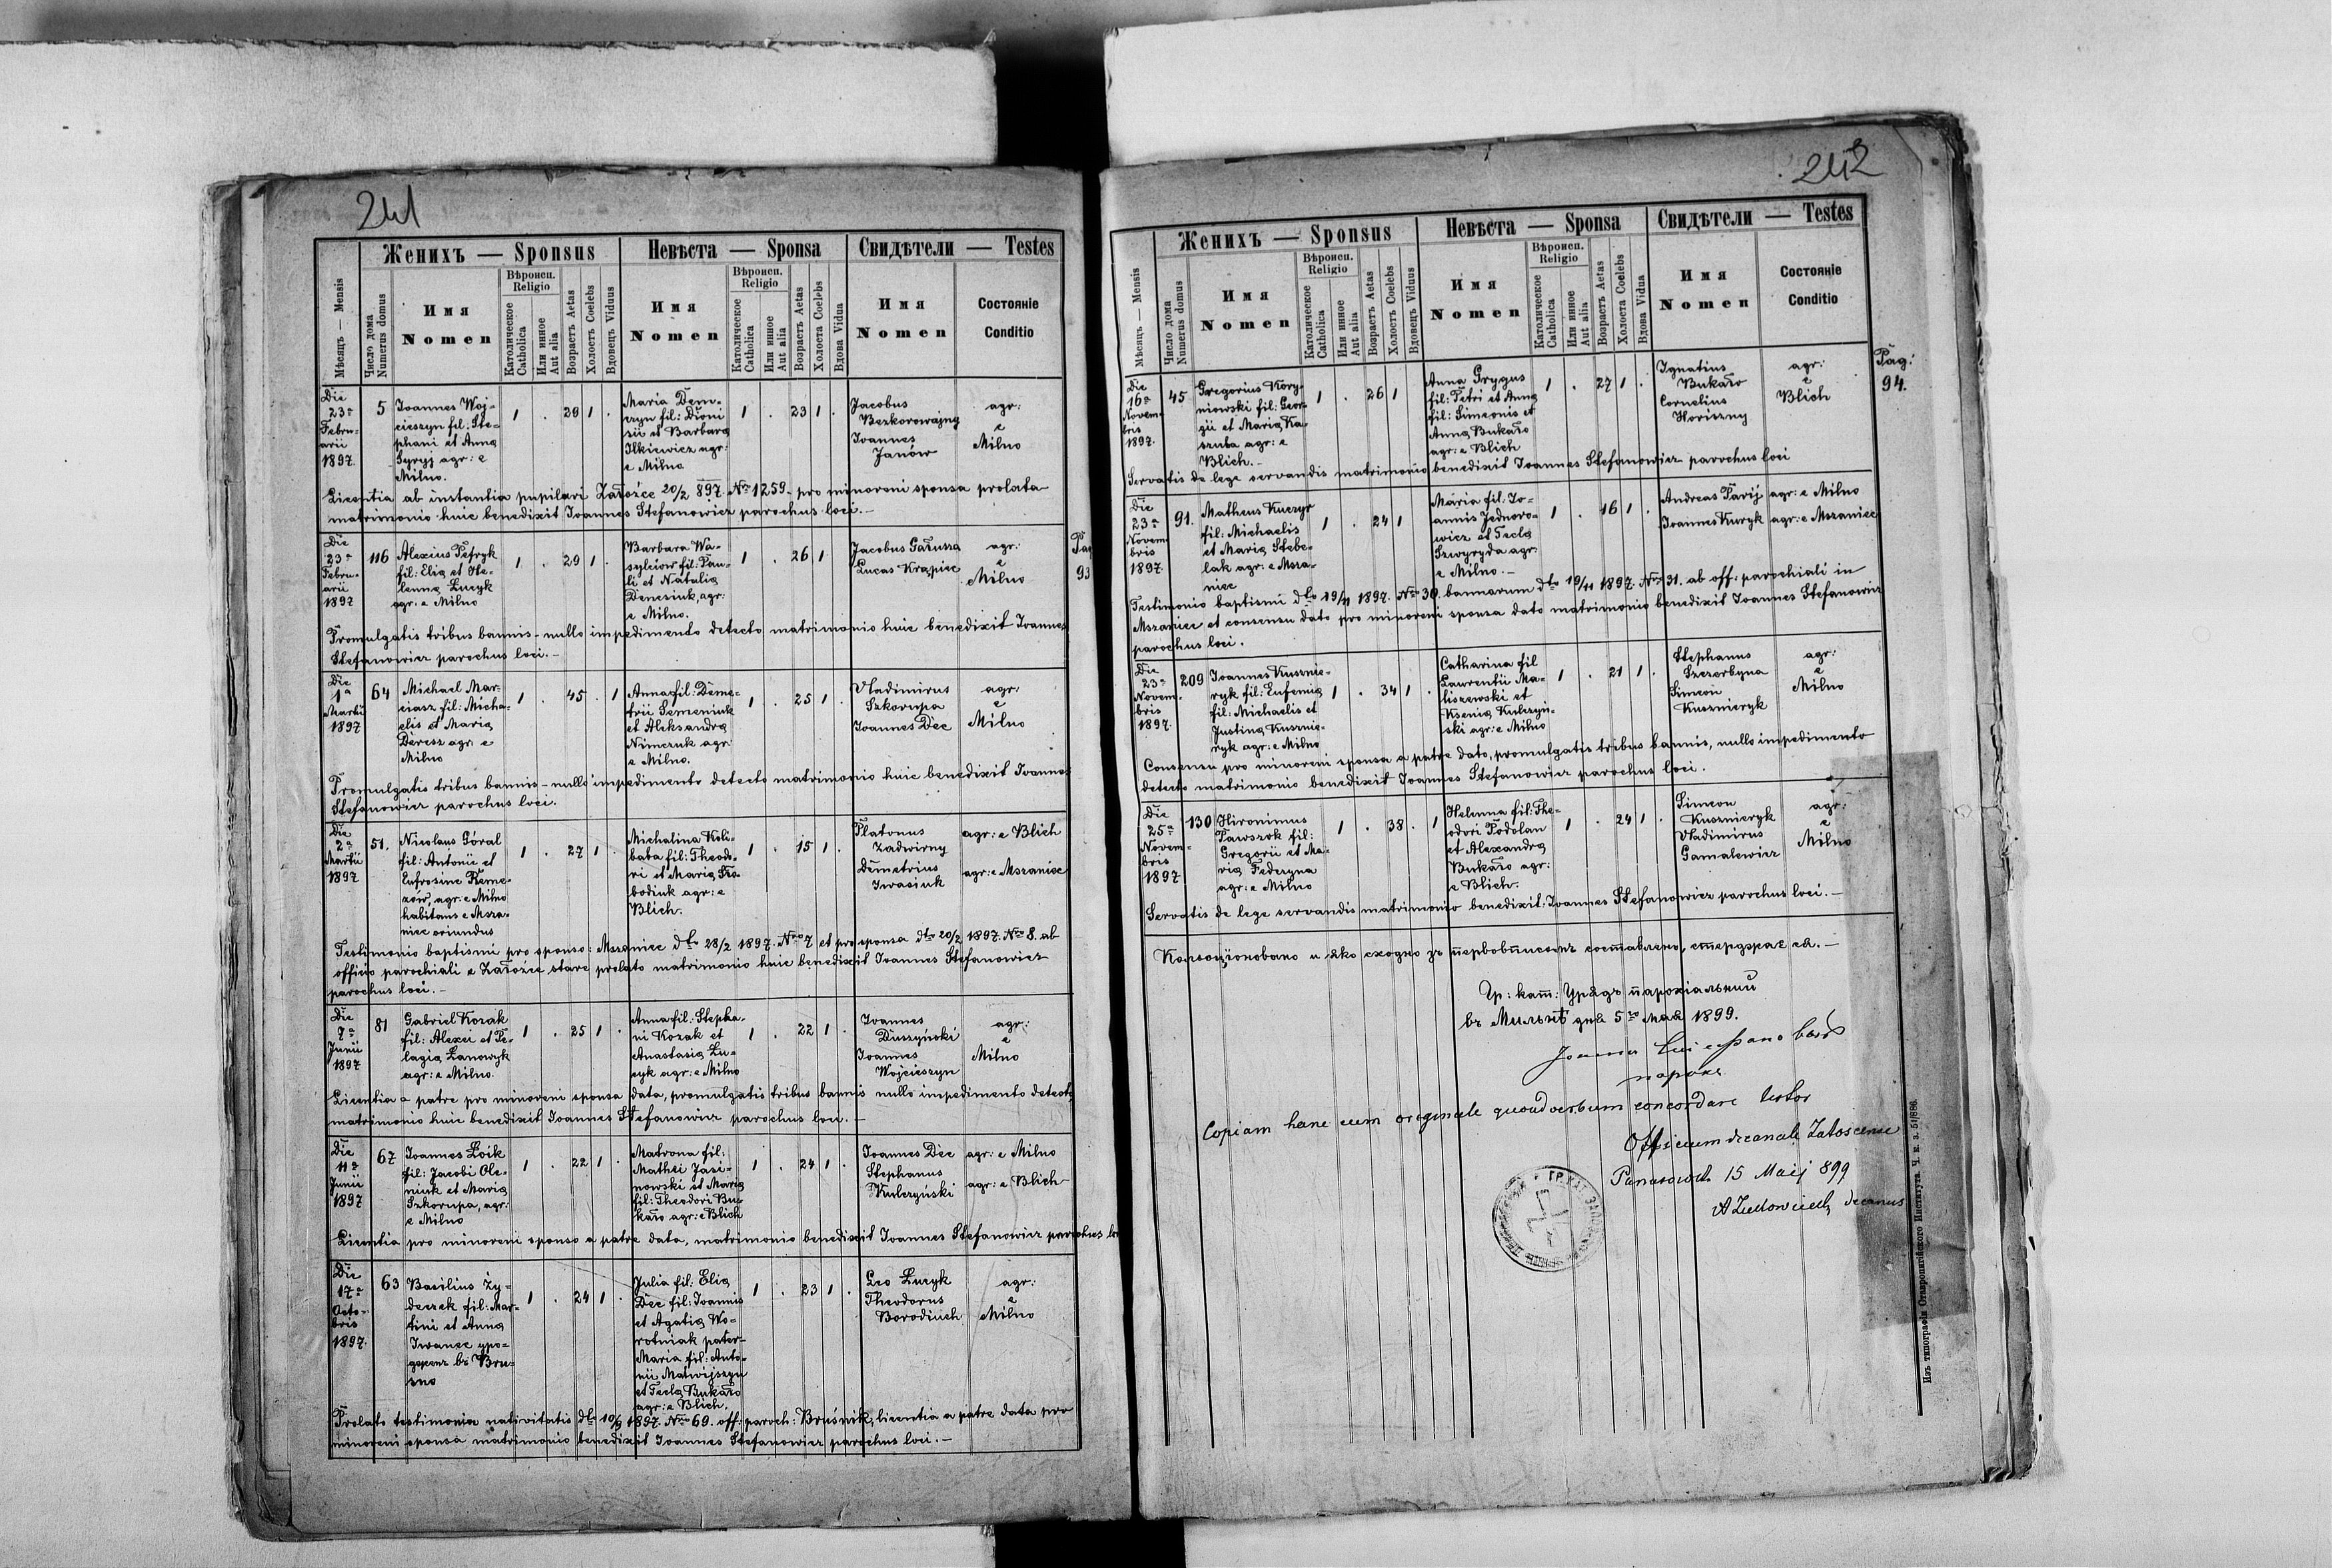 241
Женихъ — Sponsus
Невѣста — Sponsa
Свидѣтели — Testes
Мѣсяцъ — Mensis
Число дома
Numerus domus
Имя
Nomen
Вѣроисп.
Religio
Католическое
Catholica
Или инное
Aut alia
Возрастъ Aetas
Холостъ Coelebs
Вдовецъ Viduus
Имя
Nomen
Вѣроисп.
Religio
Католическое
Catholica
Или инное
Aut alia
Возрастъ Aetas
Холоста Coelebs
Вдова Vidua
Имя
Nomen
Состоянiе
Conditio
Die
23a
Febru-
arii
1897.
5
Joannes Woj-
cieszyn fil: Ste-
phani et Anna
Syryj agr: e
Milno.
1 . 29 1 .
Maria Dem-
czyn fil: Dioni
sii et Barbara
Ilkiewicz agr:
e Milno
1 . 23 1 .
Jacobus
Bezkorowajny
Joannes
Janów
agr:
e
Milno
Licentia ab instantia pupilari Załoźce 20/2 897. No 1259. pro minoreni sponsa prolata
matrimonio huic benedixit Joannes Stefanowicz parochus loci. —
Die
23a
Febru-
arii
1897
116
Alexius Pefryk
fil: Elia et He-
lenna Łucyk
agr: e Milno
1 . 29 1 .
Barbara Wa-
sylciów fil: Pau-
li et Natalia
Denesiuk, agr:
e Milno.
1 . 26 1
Jacobus Gałussa
Lucas Krąpiec
agr:
e
Milno
Pag
93
Promulgatis tribus bannis — nullo impedimento detecto matrimonio huic benedixit Joannes
Stefanowicz parochus loci. —
Die
1a
Martii
1897
64
Michael Mar-
ciasz fil: Micha-
elis et Maria
Deresz agr: e
Milno
1 . 45 . 1
Anna fil: Deme-
trii Semeniuk
et Aleksandra
Nimczuk agr:
e Milno.
1 . 25 1 .
Vladimirus
Szkorupa
Joannes Dec
agr:
e
Milno
Promulgatis tribus bannis — nullo impedimento detecto matrimonio huic benedixit Joannes
Stefanowicz parochus loci.
Die
2a
Martii
1897
51.
Nicolaus Góral
fil: Antonii et
Eufrosine Reme-
zów, agr: e Milno
habitans e Msza-
niec oriundus
1 . 27 1 .
Michalina Koli-
baba fil: Theodo-
ri et Maria Sło-
bodiuk agr: e
Blich.
1 . 15 1 .
Platonus
Zadwirny
Demetrius
Iwasiuk
agr: e Blich
agr: e Mszaniec
Testimonio baptismi pro sponso: Mszaniec dto 28/2 1897. Nro 7 et pro sponsa dto 20/2 1897. Nro 8. ab
officio parochiali e Załozce stare prolato matrimonio huic benedixit Joannes Stefanowicz
parochus loci. —
Die
7a
Junii
1897
81
Gabriel Kozak
fil: Alexei et Pe-
lagia Łanowyk
agr: e Milno.
1 . 25 1 .
Anna fil: Stepha-
ni Kozak et
Anastasia Łu-
cyk agr: e Milno
1 . 22 1 .
Joannes
Duszyński
Joannes
Wojcieszyn
agr:
e
Milno
Licentia a patre pro minoreni sponsa data, promulgatis tribus bannis nullo impedimento detecto
matrimonio huic benedixit Joannes Stefanowicz parochus loci. —
Die
11a
Junii
1897
67
Joannes Łoik
fil: Jacobi Ole-
niuk et Maria
Szkorupa, agr:
e Milno
1 . 22 1 .
Matrona fil:
Mathei Jasi-
nowski et Maria
fil: Theodori Bu-
kało agr: e Blich
1 . 24 1 .
Joannes Dec
Stephanus
Kulczyński
agr: e Milno
agr: e Blich
Licentia pro minoreni sponso a patre data, matrimonio benedixit Joannes Stefanowicz parochus
Die
17a
Octo-
bris
1897.
63
Basilius Zy-
deczek fil: Mar-
tini et Anna
Iwanec
въ Bru-
sno
1 . 24 1 .
Julia fil: Elia
Dec fil: Joannis
et Agatia Wo-
rotniak pater-
Maria fil: Anto-
nii Matwijszyn
et Tecla Bukało
agr: e Blich.
1 . 23 1 .
Leo Łucyk
Theodorus
Borodiuch
agr:
e
Milno
Prolato testimonia nativitatis dto 10/9 1897. Nro 69. off: paroch: Bruśnik, licentia a patre data pro
minoreni sponsa matrimonio benedixit Joannes Stefanowicz parochus loci. —
242
Женихъ — Sponsus
Невѣста — Sponsa
Свидѣтели — Testes
Мѣсяцъ — Mensis
Число дома
Numerus domus
Имя
Nomen
Вѣроисп.
Religio
Католическое
Catholica
Или инное
Aut alia
Возрастъ Aetas
Холостъ Coelebs
Вдовецъ Viduus
Имя
Nomen
Вѣроисп.
Religio
Католическое
Catholica
Или инное
Aut alia
Возрастъ Aetas
Холоста Coelebs
Вдова Vidua
Имя
Nomen
Состоянiе
Conditio
Die
16a
Novem-
bris
1897.
45
Gregorius Kory-
niowski fil: Geor-
gii et Maria Ka-
szuba agr: e
Blich. —
1 . 26 1
Anna Grygus
fil: Petri et Anna
fil: Simeonis et
Anna Bukało
agr: e Blich
1 . 27 1 .
Ignatius
Bukało
Cornelius
Horiszny
agr:
e
Blich
Pag:
94.
Servatis de lege servandis matrimonio benedixit Joannes Stefanowicz parochus loci
Die
23a
Novem-
bris
1897.
91.
Matheus Kuczyr
fil: Michaelis
et Maria Stebe-
lak agr: e Msza-
niec
1 . 24 1
Maria fil: Jo-
annis Jednoro-
wicz et Tecla
Szwyryda agr:
e Milno. —
1 . 16 1 .
Andreas Pavij agr: e Milno
Joannes Kuryk agr: e Mszaniec
Testimonio baptismi dto 19/11 1897. Nro 30. bannorum dto 19/11 1897. Nro 31. ab off: parochiali in
Mszaniec et consensu dato pro minoreni sponsa dato matrimonio benedixit Joannes Stefanowicz
parochus loci.
Die
23a
Novem-
bris
1897.
209
Joannes Kusznie-
ryk fil: Eufemia
fil: Michaelis et
Justina Kusznie-
ryk agr: e Milno
1 . 34 1 .
Catharina fil
Laurentii Ma-
liszewski et
Ksenia Kulczyń-
ski agr: e Milno
1 . 21 1 .
Stephanus
Szczerbyna
Simeon
Kusznieryk
agr:
e
Milno
Consensu pro minoreni sponsa a patre dato, promulgatis tribus bannis, nullo impedimento
detecto matrimonio benedixit Joannes Stefanowicz parochus loci.
Die
25a
Novem-
bris
1897
130
Hironimus
Pawszok fil:
Gregorii et Ma-
ria Federyna
agr: e Milno
1 . 38 . 1
Helenna fil: The-
odori Podolan
et Alexandra
Bukało agr:
e Blich.
1 . 24 1 .
Simeon
Kusznieryk
Vladimirus
Gamalewicz
agr:
e
Milno
Servatis de lege servandis matrimonio benedixit Joannes Stefanowicz parochus loci. —
сходно зъ первописомъ составлено,
Гр: кат: Урядъ парохіальный
въ Мильнѣ дня 5го мая 1899.
Copiam hanc cum originale quoad verbum concordare testor
Officium decanale Załoscense
15 Maij 899
decanus
Изъ типографiи Ставропигiйского Института. Ч. к. а. 51/886.